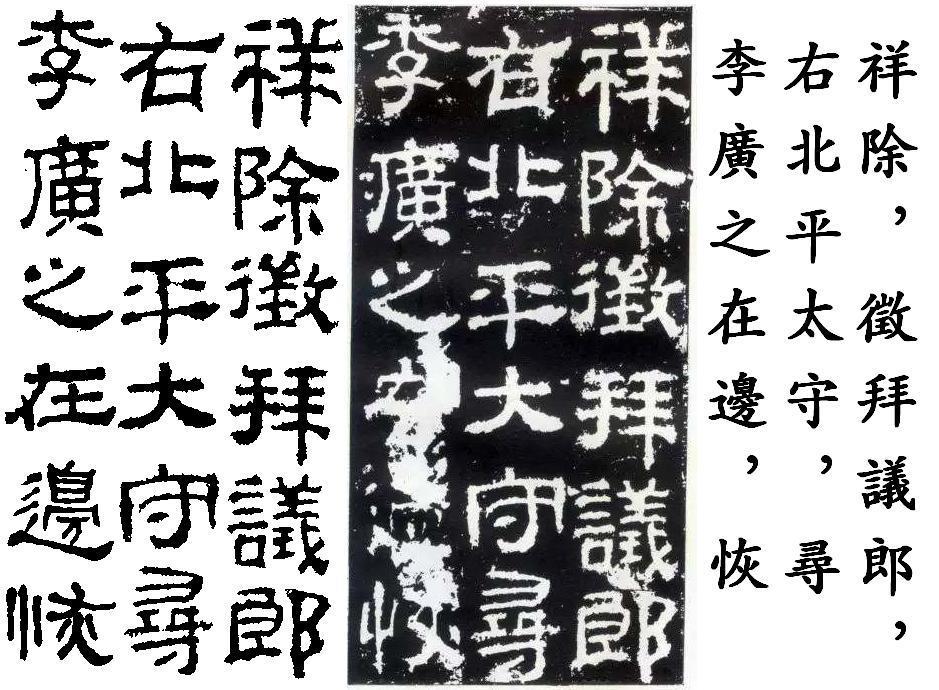 祥除，徵拜議郎，
右北平太守，尋
李廣之在邊，恢
祥除徵拜議郎
右北平大守尋
李廣之恢
祥除徵拜議郎
右北平大守尋
李廣之在邊恢